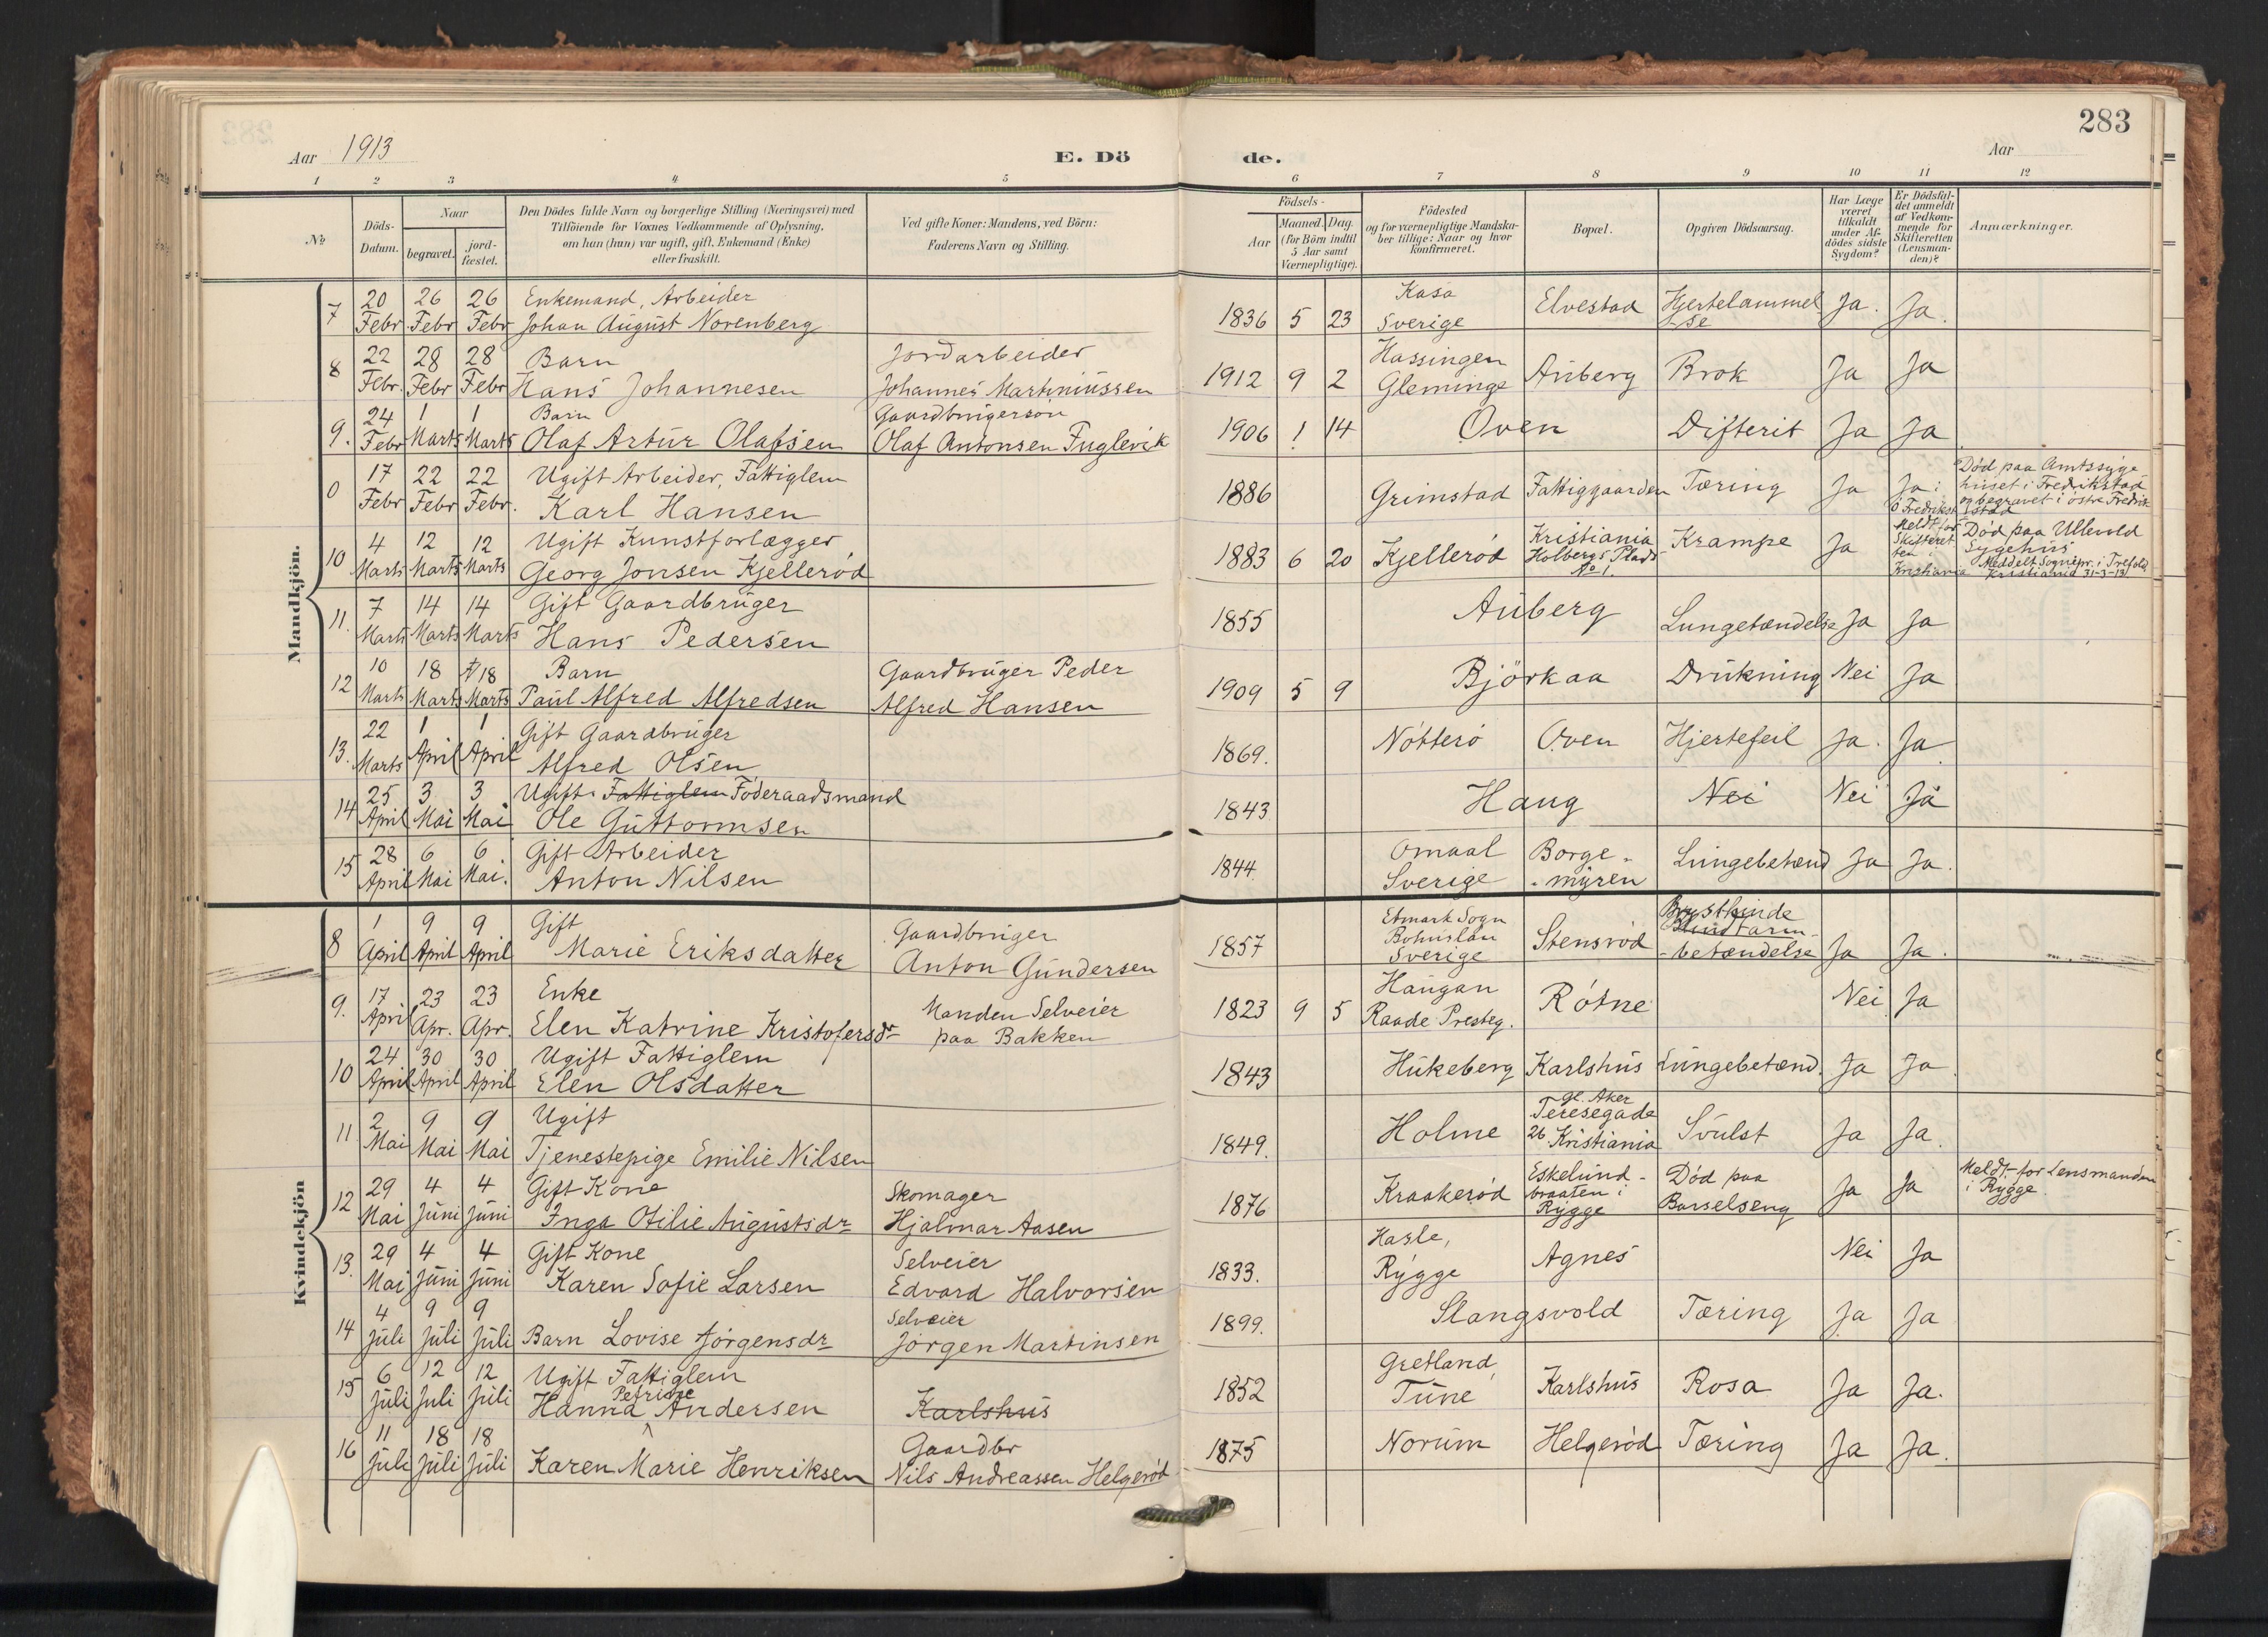 283
Aar 1913
E. Dö de.
Aar
1 2 3 4 5 6 7 8 9 10 11 12
№
Döds-Datum.
Naar
begravet.
jord-fæstet.
Den Dödes fulde Navn og borgerlige Stilling (Næringsvei) med
Tilföiende for Voxnes Vedkommende af Oplysning,
om han (hun) var ugift, gift, Enkemand (Enke)
eller fraskilt.
Ved gifte Koner: Mandens, ved Börn:
Faderens Navn og Stilling.
Födsels-
Aar
Maaned. Dag.
(for Börn indtil
5 Aar samt
Værnepligtige).
Födested
og for værnepligtige Mandska-
ber tillige: Naar og hvor
konfirmeret.
Bopæl.
Opgiven Dödsaarsag.
Har Læge
været
tilkaldt
under Af-
dödes sidste
Sygdom?
Er Dödsfal-
det anmeldt
af Vedkom-
mende for
Skifteretten
(Lensman-
den)?
Anmærkninger.
Mandkjön.
7 20 Febr 26 Febr 26 Febr Enkemand, Arbeider
Johan August Norenberg
1836 5 23 Kasa Sverige Elvestad Hjertelammel-se Ja. Ja.
8 22 Febr. 28 Febr 28 Febr Barn
Hans Johannesen
Jordarbeider
Johannes Martiniussen
1912 9 2 Hassingen Gleminge Auberg Brok Ja Ja
9. 24 Febr 1 Marts 1 Marts Barn
Olaf Artur Olafsen
Gaardbrugersön
Olaf Antonsen Fuglevik
1906 1 14 Oven Difterit Ja Ja
0 17 Febr 22 Febr 22 Febr. Ugift Arbeider, Fattiglem
Karl Hansen
1886 Grimstad Fattiggaarden Tæring Ja Ja i Ö Fredrikst
Död paa Amtssyge-
huset i Fredrikstad
og begravet i östre Fredrik
stad
10 4 Marts 12 Marts 12 Marts Ugift Kunstforlægger
Georg Jonsen Kjelleröd
1883 6 20 Kjelleröd Kristiania Holbergs Plads No 1. Krampe Ja Meldt for Skifteret ten i Kristiania
Död paa Ullevold
Sygehus
Meddelt Sognepr. i Trefold.
Kristiania 31-3-13
11. 7 Marts 14 Marts 14 Marts Gift Gaardbruger
Hans Pedersen
1855 Auberg Lungetændelse Ja Ja
12 10 Marts 18 Marts 18 Marts Barn
Paul Alfred Alfredsen
Gaardbruger Peder
Alfred Hansen
1909 5 9 Björkaa Drukning Nei Ja
13. 22 Marts 1 April 1 April Gift Gaardbruger
Alfred Olsen
1869. Nötterö Oven Hjertefeil Ja. Ja
14 25 April 3 Mai 3 Mai Ugift Fattiglem Föderaadsmand
Ole Guttormsen
1843 Haug Nei Nei Ja
15 28 April 6 Mai 6 Mai. Gift Arbeider
Anton Nilsen
1844 Omaal Sverige Borge-myren Lungebetænd Ja Ja.
Kvindekjön
8 1 April 9 April 9 April Gift
Marie Eriksdatter
Gaardbruger
Anton Gundersen
1857 Etmark Sogn Bohuslän Sverige Stensröd Brysthinde Blindtarm-betændelse Ja Ja.
9. 17 April 23 Apr. 23 Apr. Enke
Elen Katrine Kristofersdr
Manden Selveier
paa Bakken
1823 9 5 Haugan Raade Presteg. Rötne Nei Ja
10 24 April 30 April 30 April Ugift Fattiglem
Elen Olsdatter
1843 Hukeberg Karlshus Lungebetænd. Ja Ja
11 2 Mai 9 Mai 9 Mai Ugift
Tjenestepige Emilie Nilsen
1849. Holme gl. Aker Teresegade 26 Kristiania Svulst Ja Ja.
12 29 Mai 4 Juni 4 Juni Gift Kone
Inga Otilie Augustsdr
Skomager
Hjalmar Aasen
1876 Kraakeröd Eskelund-braaten i Rygge Död paa Barselseng Ja Ja
Meldt for Lensmanden
i Rygge
13. 29 Mai 4 Juni 4 Juni Gift Kone
Karen Sofie Larsen
Selveier
Edvard Halvorsen
1833. Hasle, Rygge Agnes Nei Ja
14 4 Juli 9 Juli 9 Juli Barn Lovise Jörgensdr
Selveier
Jörgen Martinsen
1899. Slangsvold Tæring Ja Ja
15 6 Juli 12 Juli 12 Juli Ugift Fattiglem
Hanna Petrine Andersen
Karlshus
1852 Gretland, Tune Karlshus Rosa Ja Ja.
16 11 Juli 18 Juli 18 Juli Karen Marie Henriksen
Gaardbr
Nils Andreassen Helgeröd
1875 Norum Helgeröd Tæring Ja Ja.